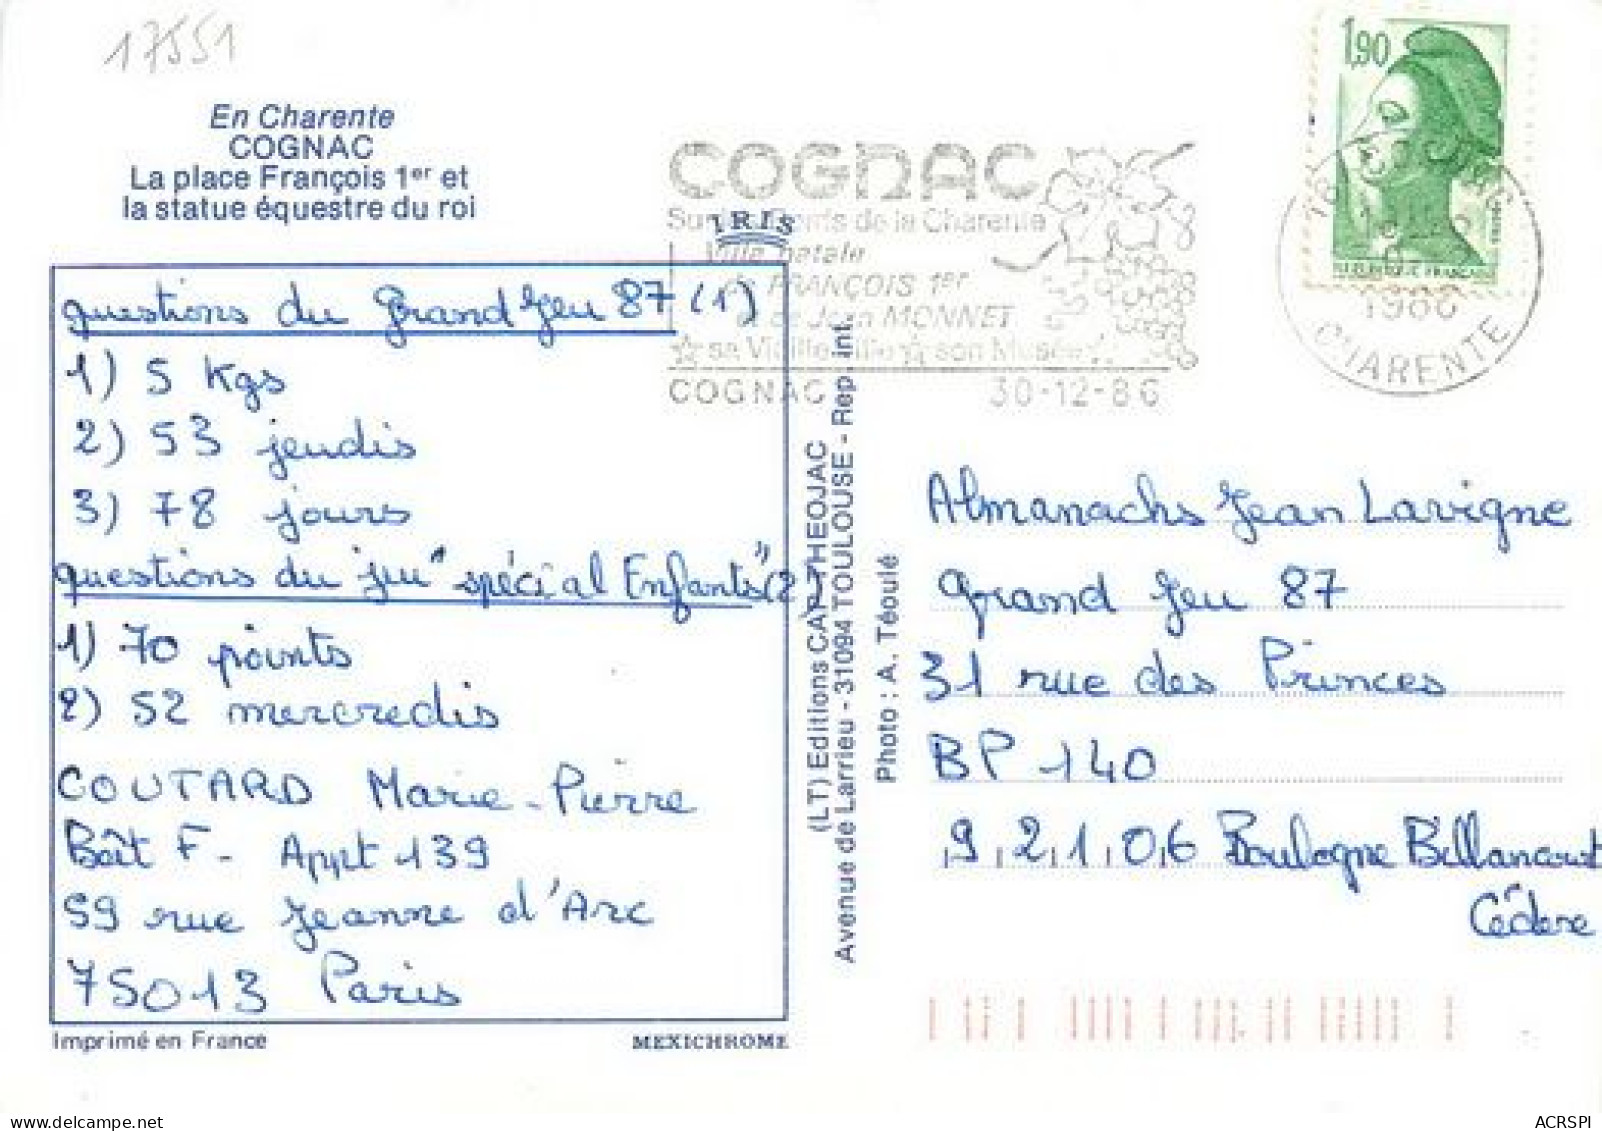 17551
En Charente
COGNAC
La place François 1er et
la statue équestre du roi
IRIS
questions du Grand Jeu 87 (1)
1) 5 Kgs
2) 53 jeudis
3) 78 jours
questions du jeu "spécial Enfants" (2)
1) 70 points
2) 52 mercredis
COUTARD Marie-Pierre
Bât F- Appt 139
59 rue Jeanne d'Arc
75013 Paris
Imprimé en France
MEXICHROME
(LT) Editions CAP-THEOJAC
Avenue de Larrieu - 31094 TOULOUSE - Rep. int.
Photo : A. Téoulé
COGNAC
de la Charente
Ville natale
de FRANÇOIS 1er
et de Jean MONNET
sa Vieille Ville son Musée
COGNAC 30-12-86
1,90
REPUBLIQUE FRANÇAISE
1986
CHARENTE
Almanachs Jean Lavigne
Grand Jeu 87
31 rue des Princes
BP 140
92106 Boulogne Billancourt
Cédex
ACRSPI